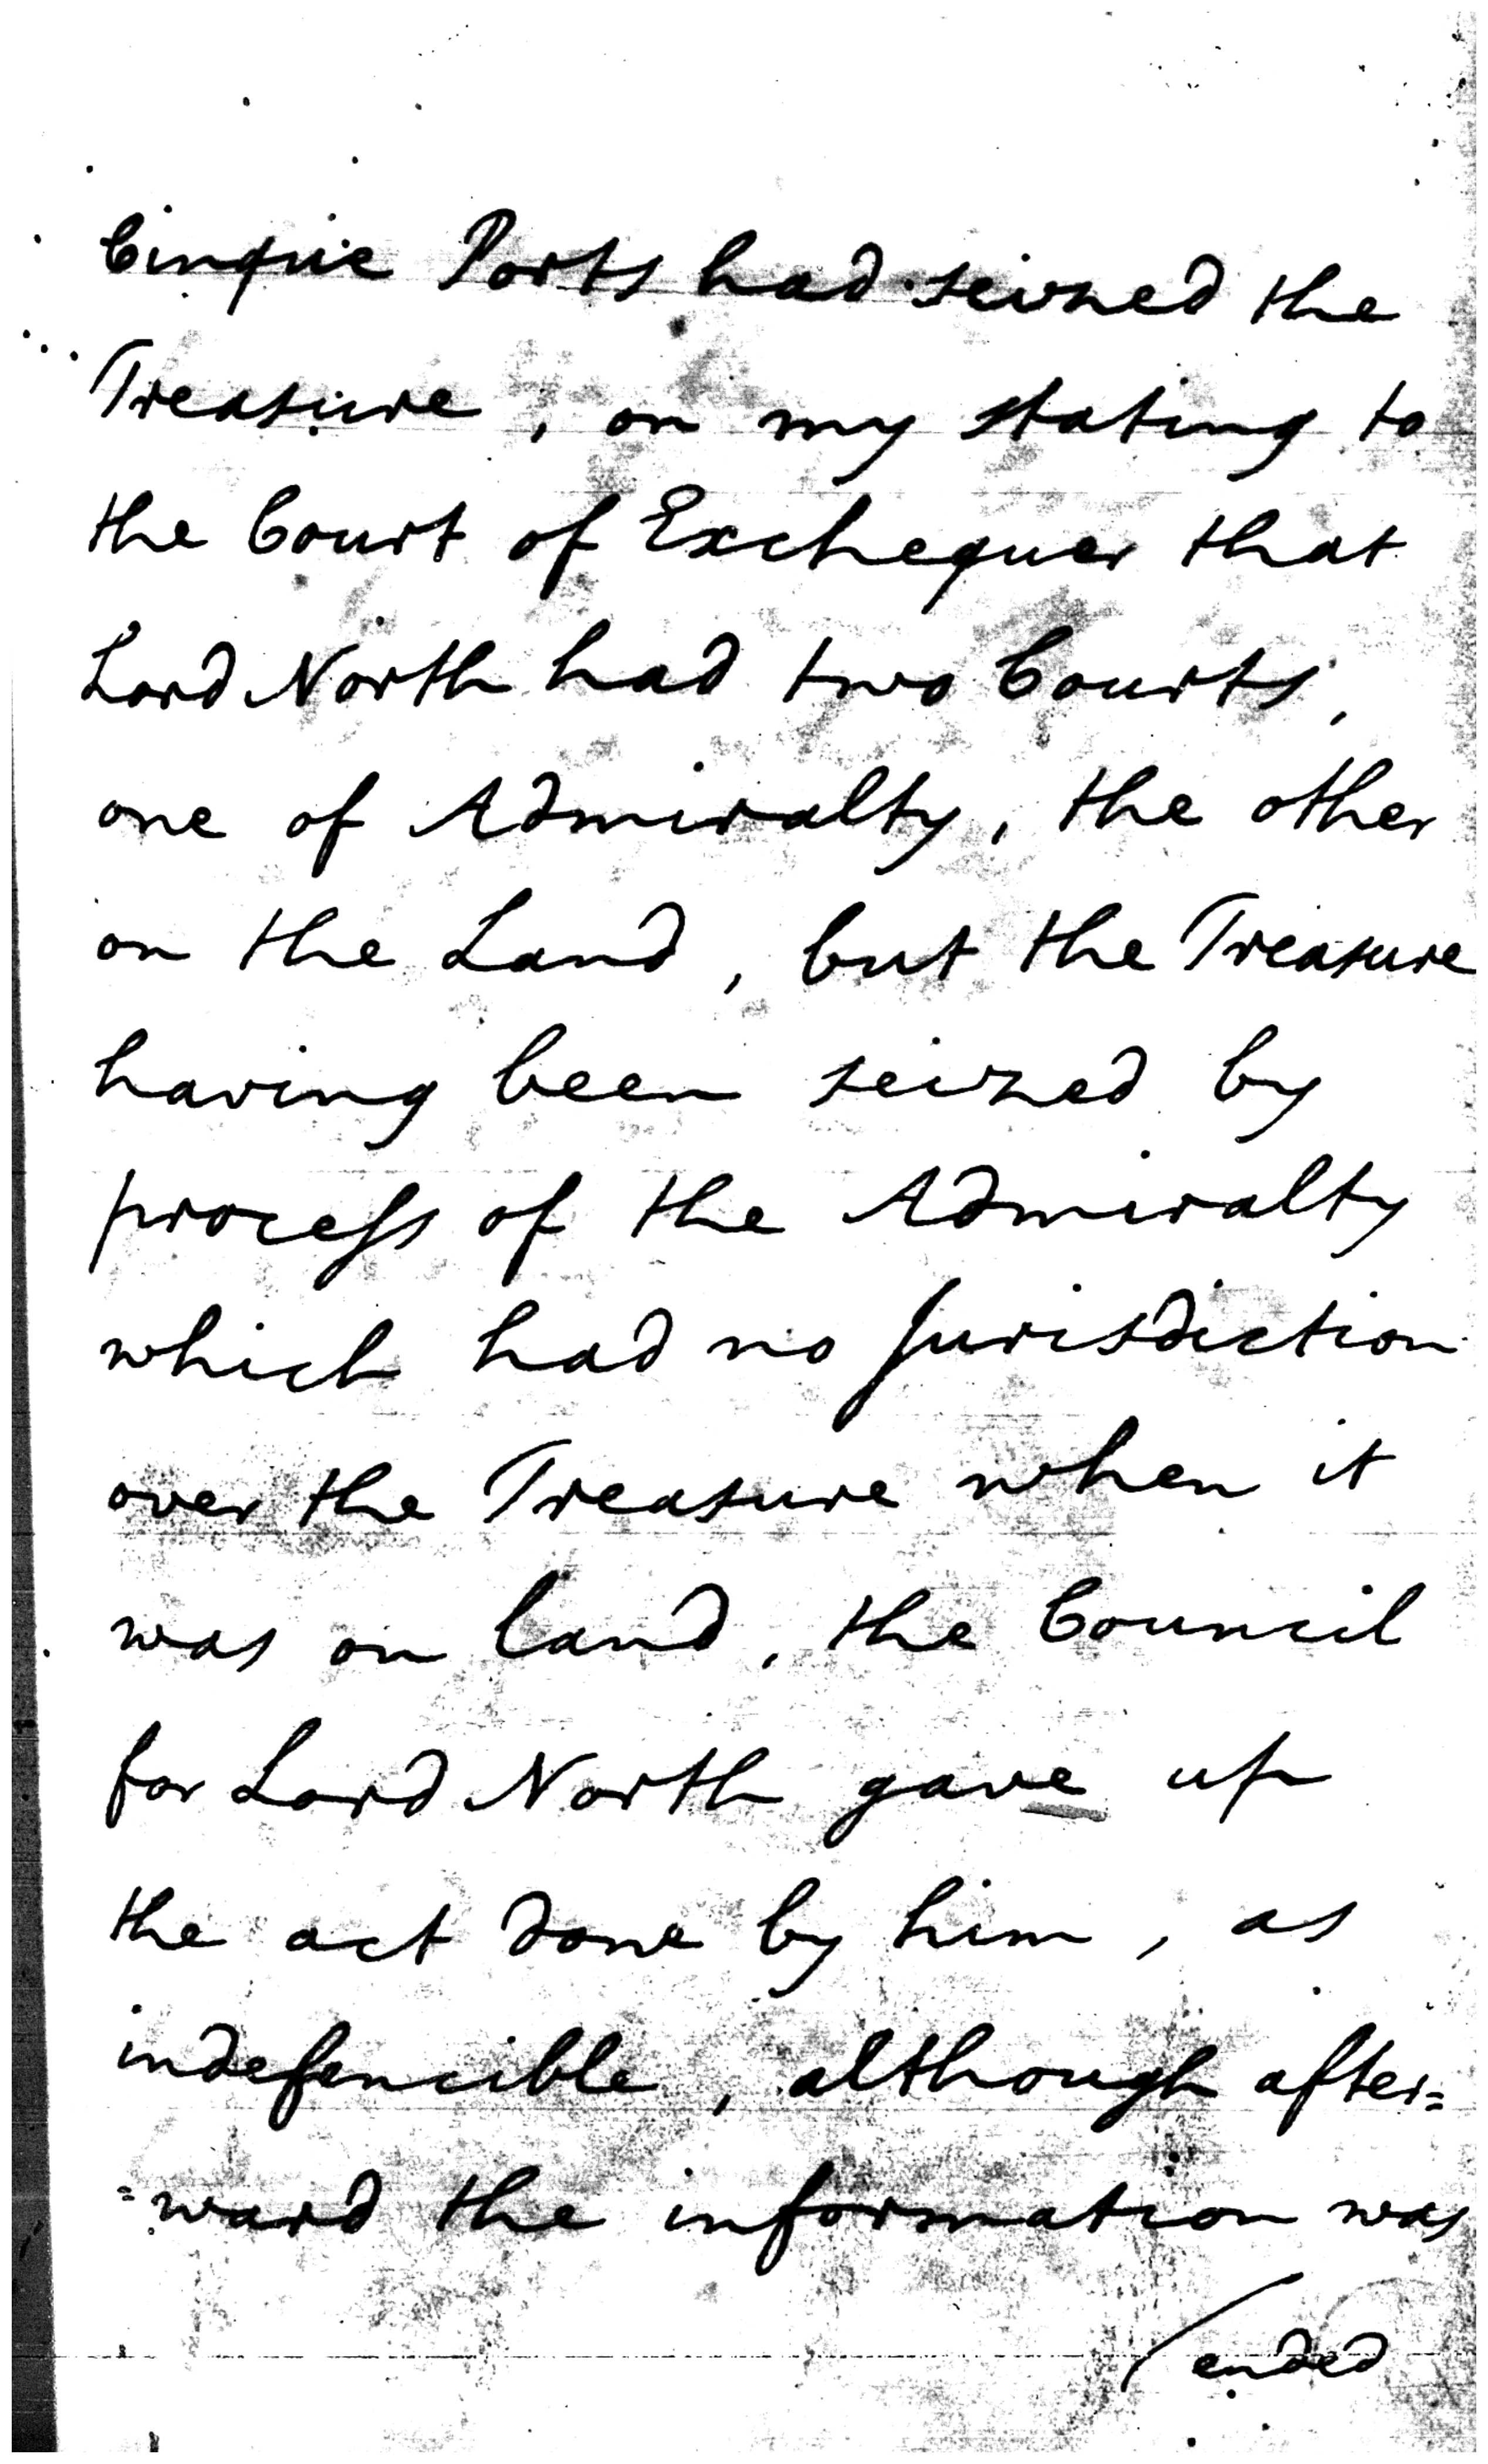 Cinque Ports had seized the
Treasure, on my stating to
the Court of Exchequer that
Lord North had two Courts,
one of Admiralty, the other
on the Land, but the Treasure
having been seized by
process of the Admiralty
which had no Jurisdiction
over the Treasure when it
was on land, the Council
for Lord North gave up
the act done by him, as
indefencible, although after=
=ward the information was
/ended